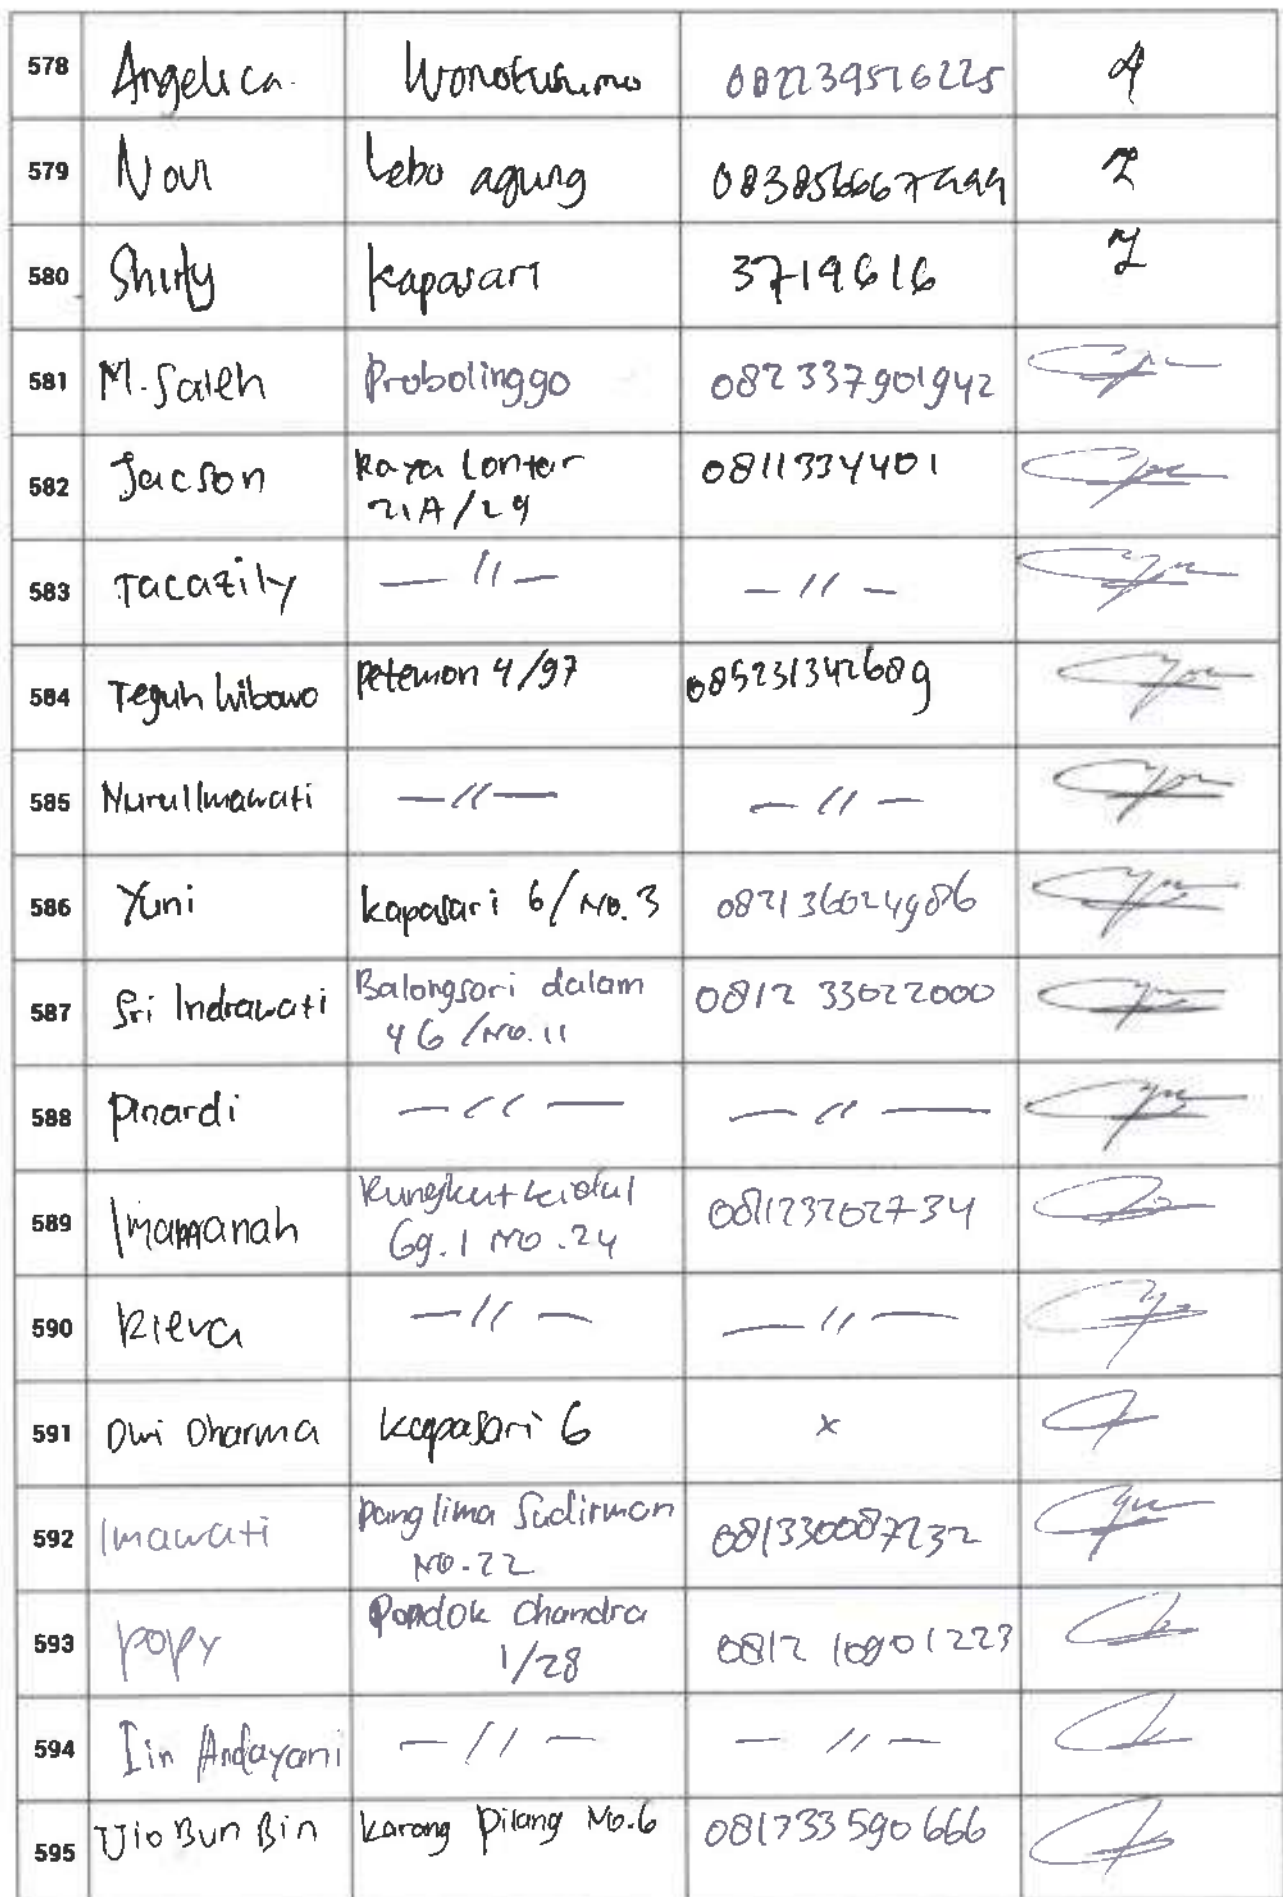 578 Angelica Wonokusumo 082239576225
579 Novi Lebo agung
580 Shirly kapasari 3719616
581 M. Saleh Probolinggo 082 337901942
582 Jacson Raya Lontar 0811334401
21A/29
583 Tacazily — 11 — — 11 —
584 Teguh Wibowo Petemon 4/97 085231342689
585 Nurul Imawati — 11 — — 11 —
586 Yuni kapasari 6/No.3 082136024986
587 Sri Indrawati Balongsari dalam 0812 33022000
4G/No.11
588 Pinardi — 11 — — 11 —
589 Imamanah Rungkut keidul 0811232027 34
Gg.1 No.24
590 Rieva — 11 — — 11 —
591 Dwi Dharma kapasari 6 x
592 Imawati Panglima Sudirman 081330087232
No.22
593 Popy Pondok Chandra 0812 10901223
1/28
594 Iin Andayani — 11 — — 11 —
595 Bun Bin karang Pilang No.6 081733590666